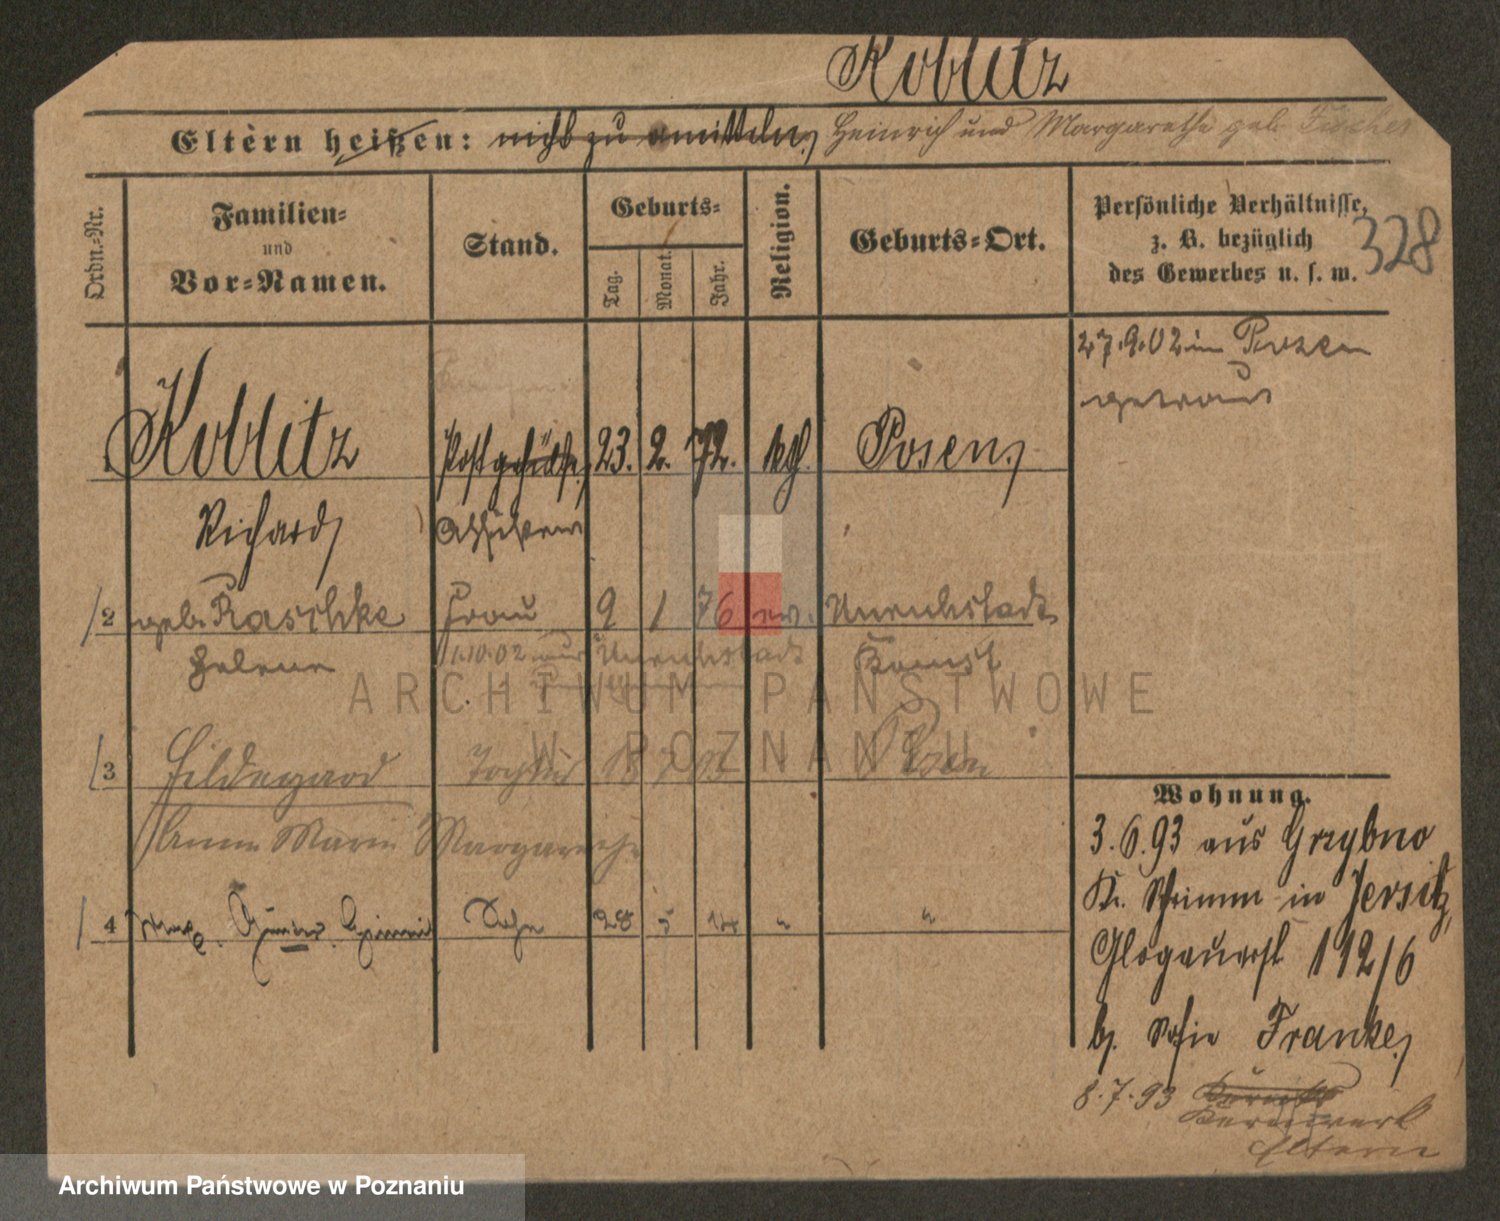 Koblitz
Eltern heißen: nicht zu ermitteln, Heinrich und Margarethe geb. Fischer
Ordn.-Nr.
Familien-
und
Vor-Namen.
Stand.
Geburts-
Tag.
Monat.
Jahr.
Religion.
Geburts-Ort.
Persönliche Verhältnisse,
z. B. bezüglich
des Gewerbes u. s. w.
328
27.9.02 in Posen
getraut
1 Koblitz Postgehülfe, 23. 2. 72. kgl. Posen,
Richard, Assistent
2 geb. Raschke Frau 9 1 76 ev. Unruhstadt
Helene 1.10.02 aus Unruhstadt Bomst
3 Hildegard Tochter 18 7 Posen
Anna Marie Margarethe
4 Günter Sohn 28 5 14 " "
Wohnung.
3.6.93 aus Grzybno
Kr. Schrimm in Jersitz,
Glogauerst 112/6
b. Sofie Franke,
8.7.93
Kernwerk
Eltern
ARCHIWUM PAŃSTWOWE
W POZNANIU
Archiwum Państwowe w Poznaniu